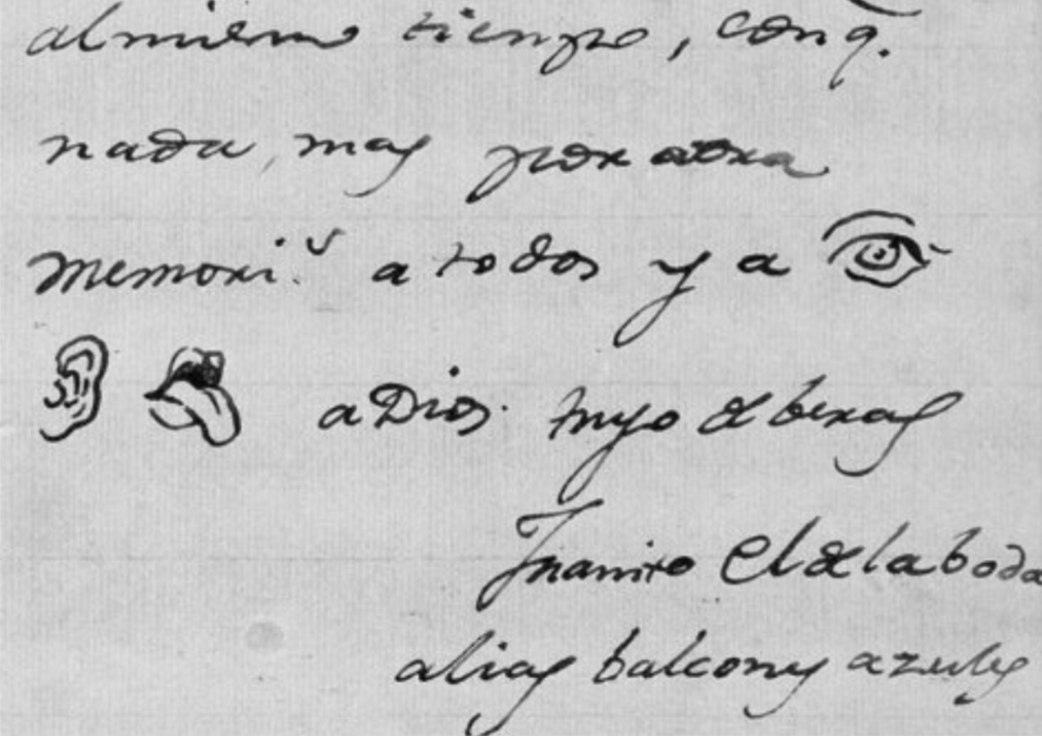 al mismo tiempo, con q.
nada mas por aora
memori.s a todos y a
a Dios. tuyo de beras
Juanito El de la boda
alias balcones azules